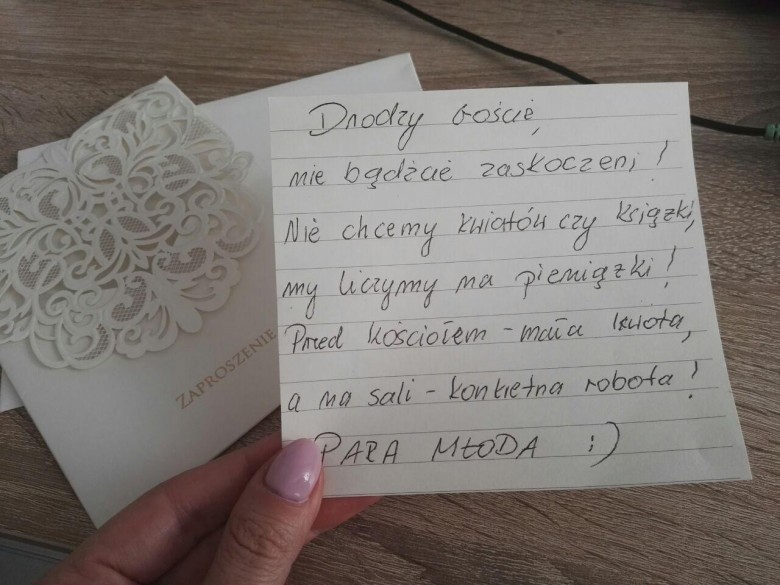 ZAPROSZENIE
Drodzy Goście,
nie bądźcie zaskoczeni!
Nie chcemy kwiatów czy książki,
my liczymy na pieniążki!
Przed kościołem - mała kwota,
a na sali - konkretna robota!
PARA MŁODA :)